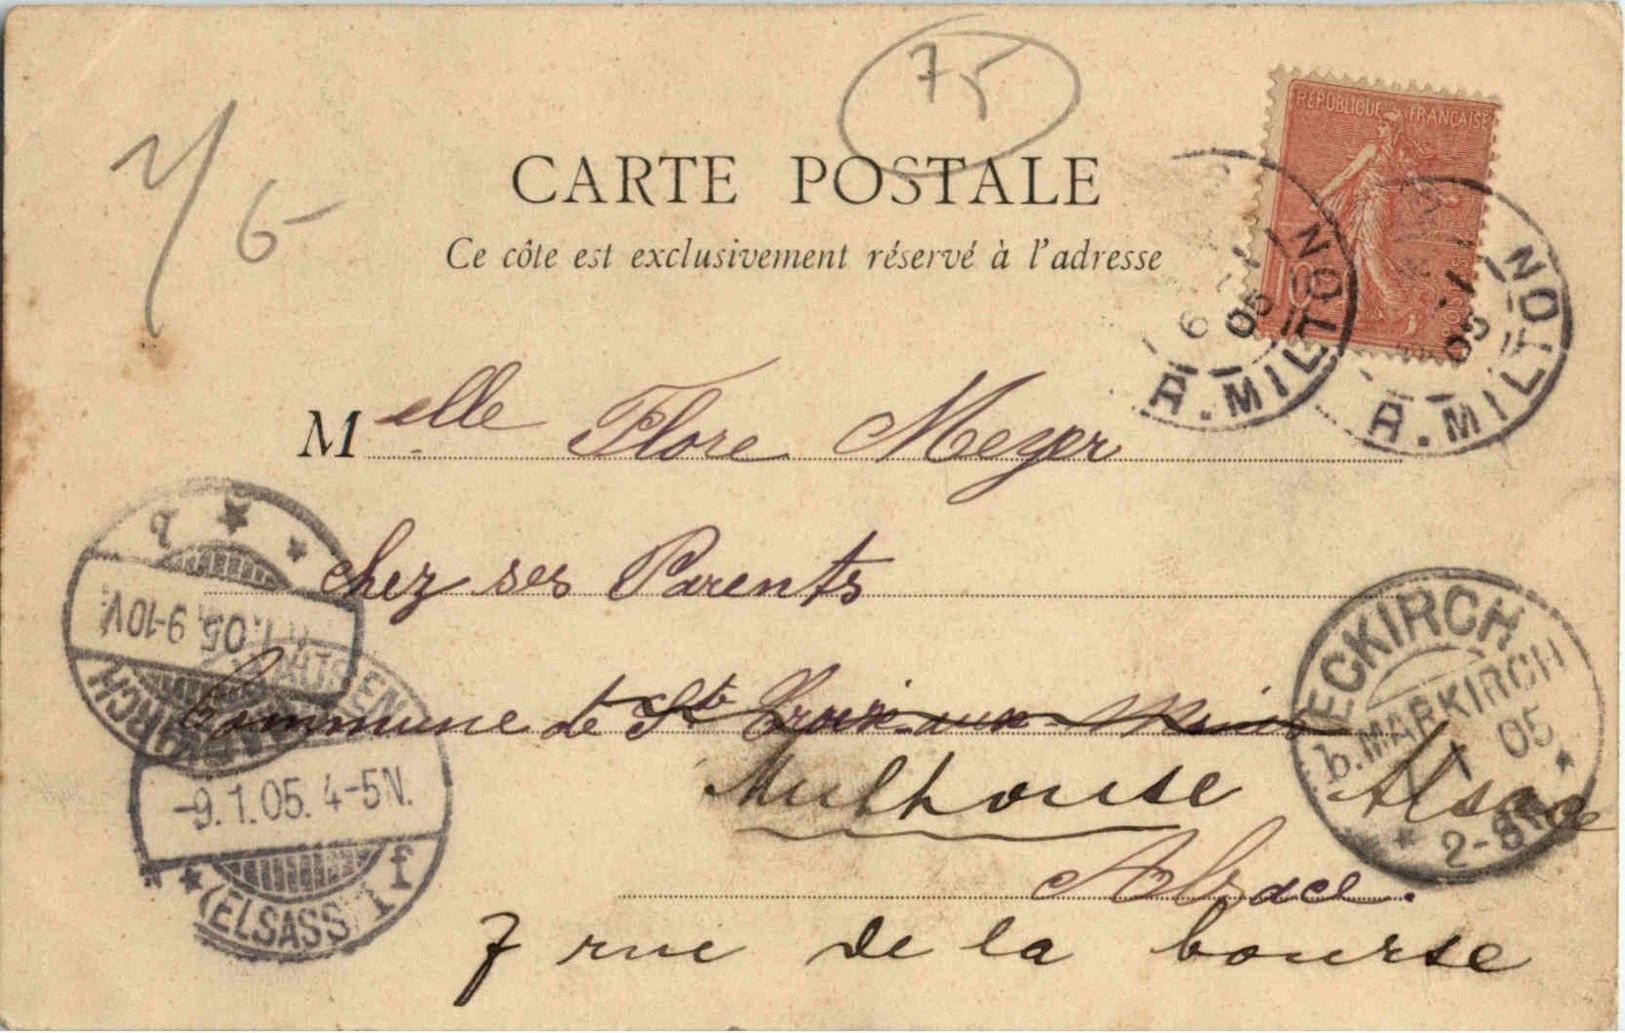 75
1/6-
RÉPUBLIQUE FRANÇAISE
10
CARTE POSTALE
Ce côte est exclusivement réservé à l'adresse
R. MILTON
6 -1 05
R. MILTON
-1 05
Melle Flore Meyer
chez ses Parents
Commune de Ste Croix-aux-Mines
Mulhouse Alsace
Alsace.
7 rue de la bourse
MARKIRCH
.1.05. 9-10V.
MÜLHAUSEN
-9.1.05. 4-5N.
(ELSASS) 1 f
ECKIRCH
b. MARKIRCH
1 05
2-8N